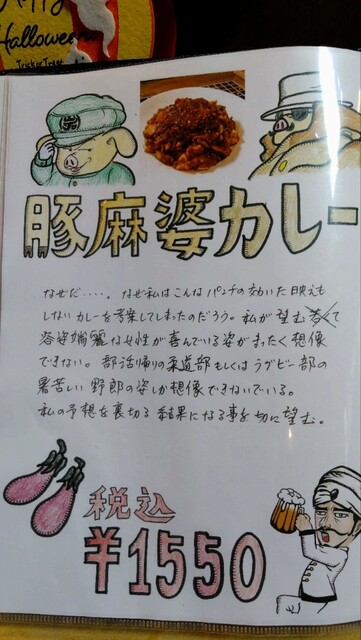 Halloween
Trick or Treat
豚麻婆カレー
なぜだ‥‥。なぜ私はこんなパンチの効いた映えも
しないカレーを考案してしまったのだろう。私が望む若くて
容姿端麗な女性が喜んでいる姿がまったく想像
できない。部活帰りの柔道部もしくはラグビー部の
暑苦しい野郎の姿しか想像できないでいる。
私の予想を裏切る結果になる事を切に望む。
税込
¥1550